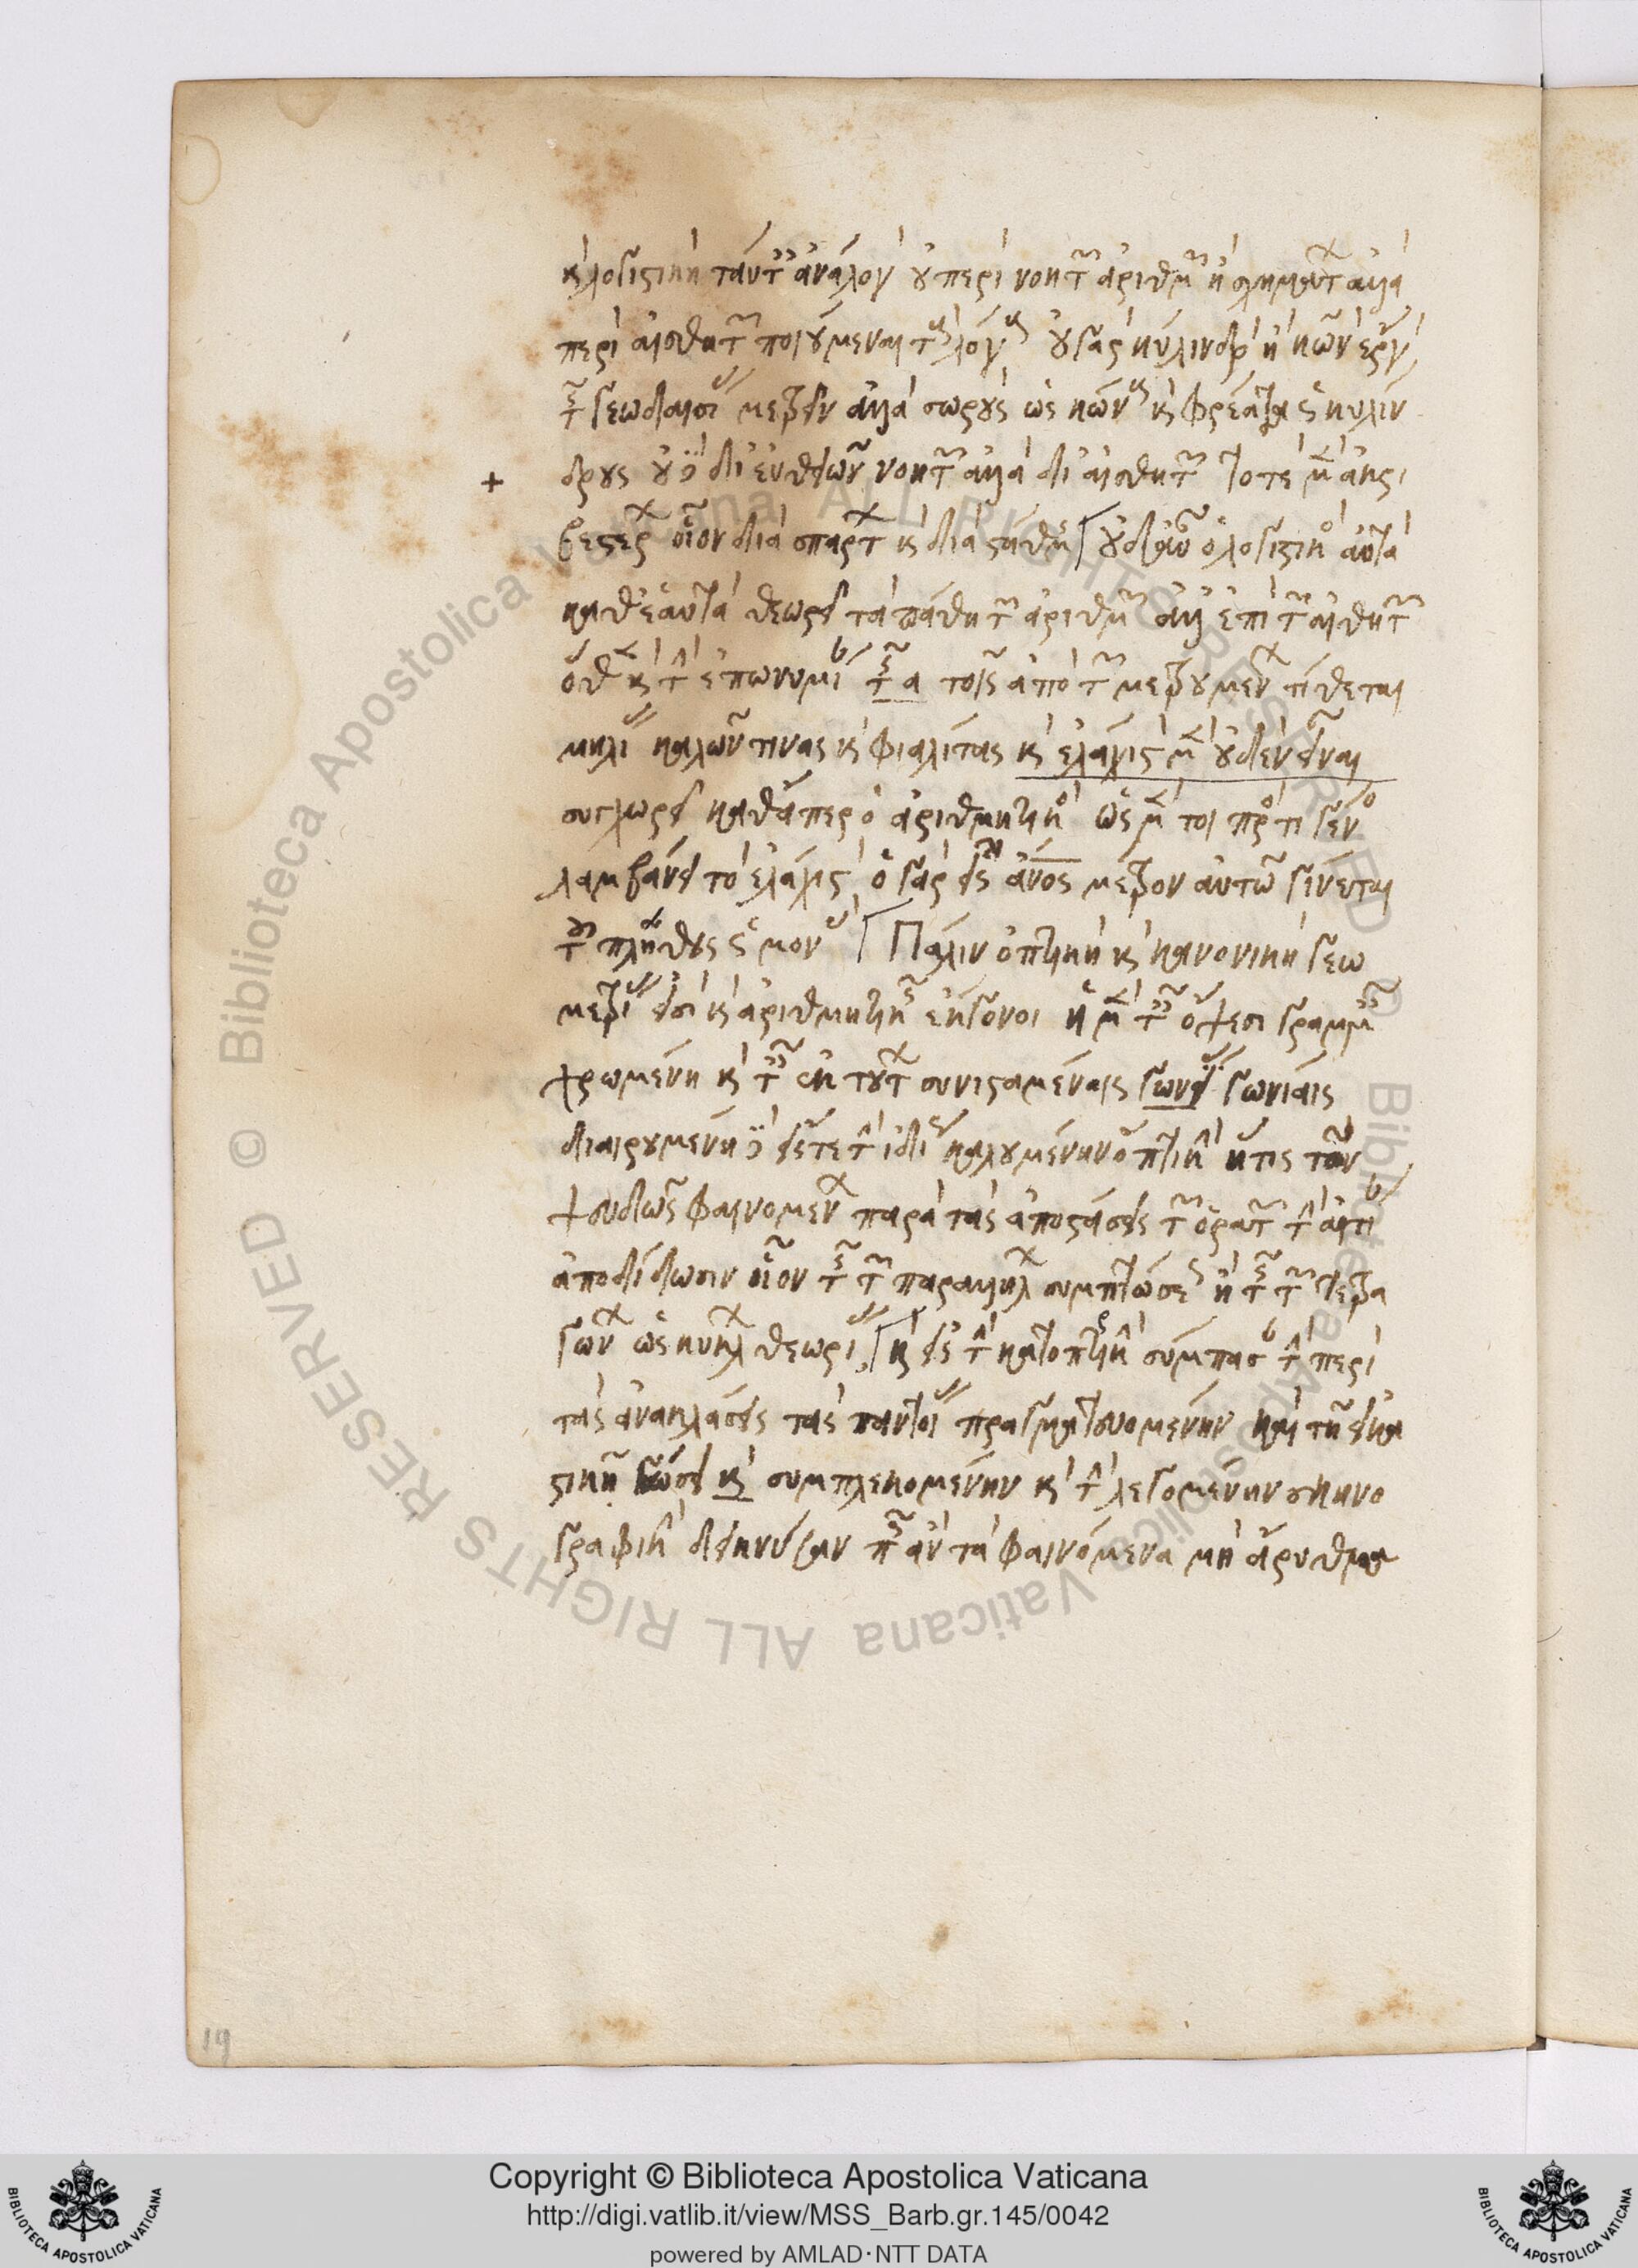 καὶ λογιστικὴ ταύταις ἀνάλογον οὐ περὶ νοητῶν ἀριθμῶν ἢ σχημάτων ἀλλὰ
περὶ αἰσθητῶν ποιούμεναι τοὺς λόγους οὐ γὰρ κύλινδρον ἢ κῶνον ἔργον
τῆς γεωδαισίας μετρεῖν ἀλλὰ σωροὺς ὡς κώνους καὶ φρέατα ὡς κυλίν
δρους οὐδὲ δι' εὐθειῶν νοητῶν ἀλλὰ δι' αἰσθητῶν τοτὲ μὲν ἀκρι
βεστέρων οἷον διὰ σπάρτων καὶ διὰ στάθμης οὐδ' αὖ ὁ λογιστικὸς αὐτὰ
καθ' ἑαυτὰ θεωρεῖ τὰ πάθη τῶν ἀριθμῶν ἀλλ' ἐπὶ τῶν αἰσθητῶν
ὅθεν καὶ τὴν ἐπωνυμίαν τῆς α τοῖς ἀπὸ τῶν μετρουμένων τίθεται
μηλίτας καλῶν τινας καὶ φιαλίτας καὶ ἐλάχιστον μὲν οὐδὲν εἶναι
συγχωρεῖ καθάπερ ὁ ἀριθμητικός ὡς μέντοι πρός τι γένος
λαμβάνει τὸ ἐλάχιστον ὁ γὰρ εἷς ἄνος μέτρον αὐτῷ γίνεται
τοῦ πλήθους ὡς μονάς Πάλιν ὀπτικὴ καὶ κανονικὴ γεω
μετρίας εἰσὶ καὶ ἀριθμητικῆς ἔκγονοι ἡ μὲν ταῖς ὄψεσι γραμμαῖς
χρωμένη καὶ ταῖς ἐκ τούτων συνισταμέναις γωνίαις
διαιρουμένη δὲ εἴς τε τὴν ἰδίως καλουμένην ὀπτικὴν ἥτις τῶν
ψευδῶς φαινομένων παρὰ τὰς ἀποστάσεις τῶν ὁρατῶν τὴν αἰτίαν
ἀποδίδωσιν οἷον τῆς τῶν παραλλήλων συμπτώσεως ἢ τῆς τῶν τετρα
γώνων ὡς κύκλων θεωρίας καὶ εἰς τὴν κατοπτρικὴν σύμπασαν τὴν περὶ
τὰς ἀνακλάσεις τὰς παντοίας πραγματευομένην καὶ τῇ εἰκα
στικῇ γνώσει καὶ συμπλεκομένην καὶ τὴν λεγομένην σκηνο
γραφικὴν δεικνῦσαν πῶς ἂν τὰ φαινόμενα μὴ ἄρυθμα
19
Copyright © Biblioteca Apostolica Vaticana
http://digi.vatlib.it/view/MSS_Barb.gr.145/0042
powered by AMLAD·NTT DATA